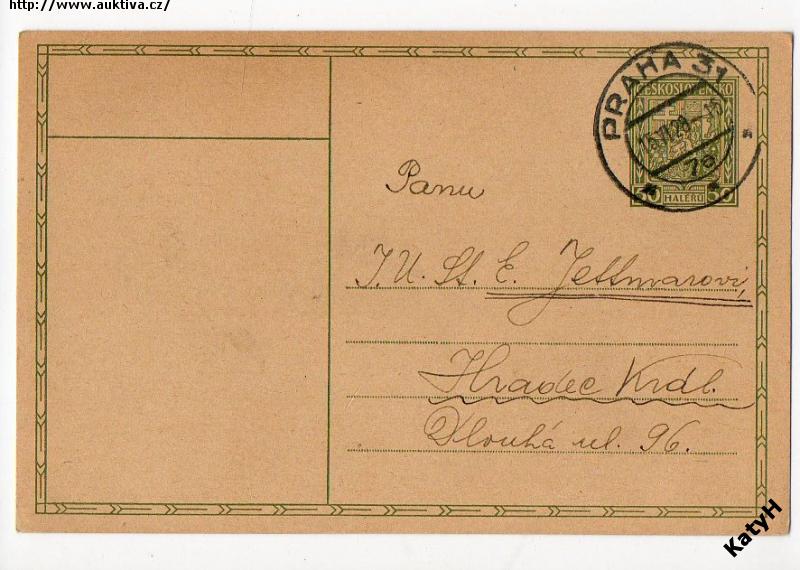 http://www.auktiva.cz/
PRAHA 31
ČESKOSLOVENSKO
7a
50 HALÉŘŮ 50
Panu
J.U.St. E. Jettmarovi,
Hradec Král.
Dlouhá ul. 96.
KatyH